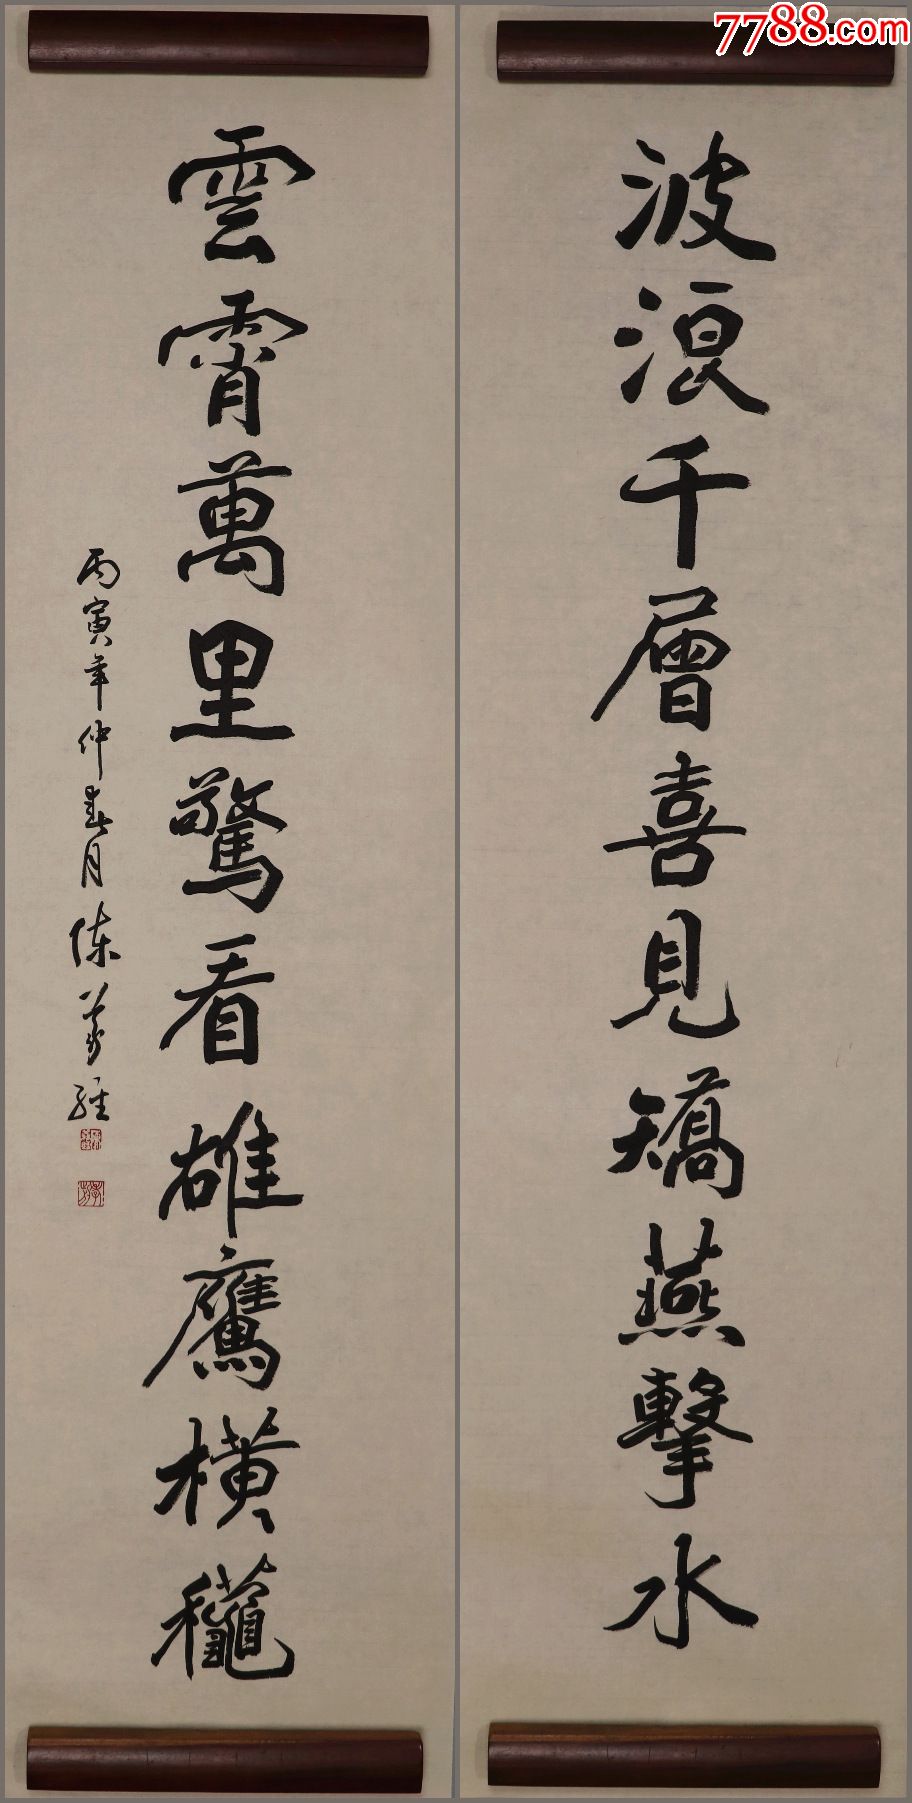 7788.com
波浪千層喜見矯燕擊水
雲霄萬里驚看雄鷹橫穐
丙寅年仲春月陳